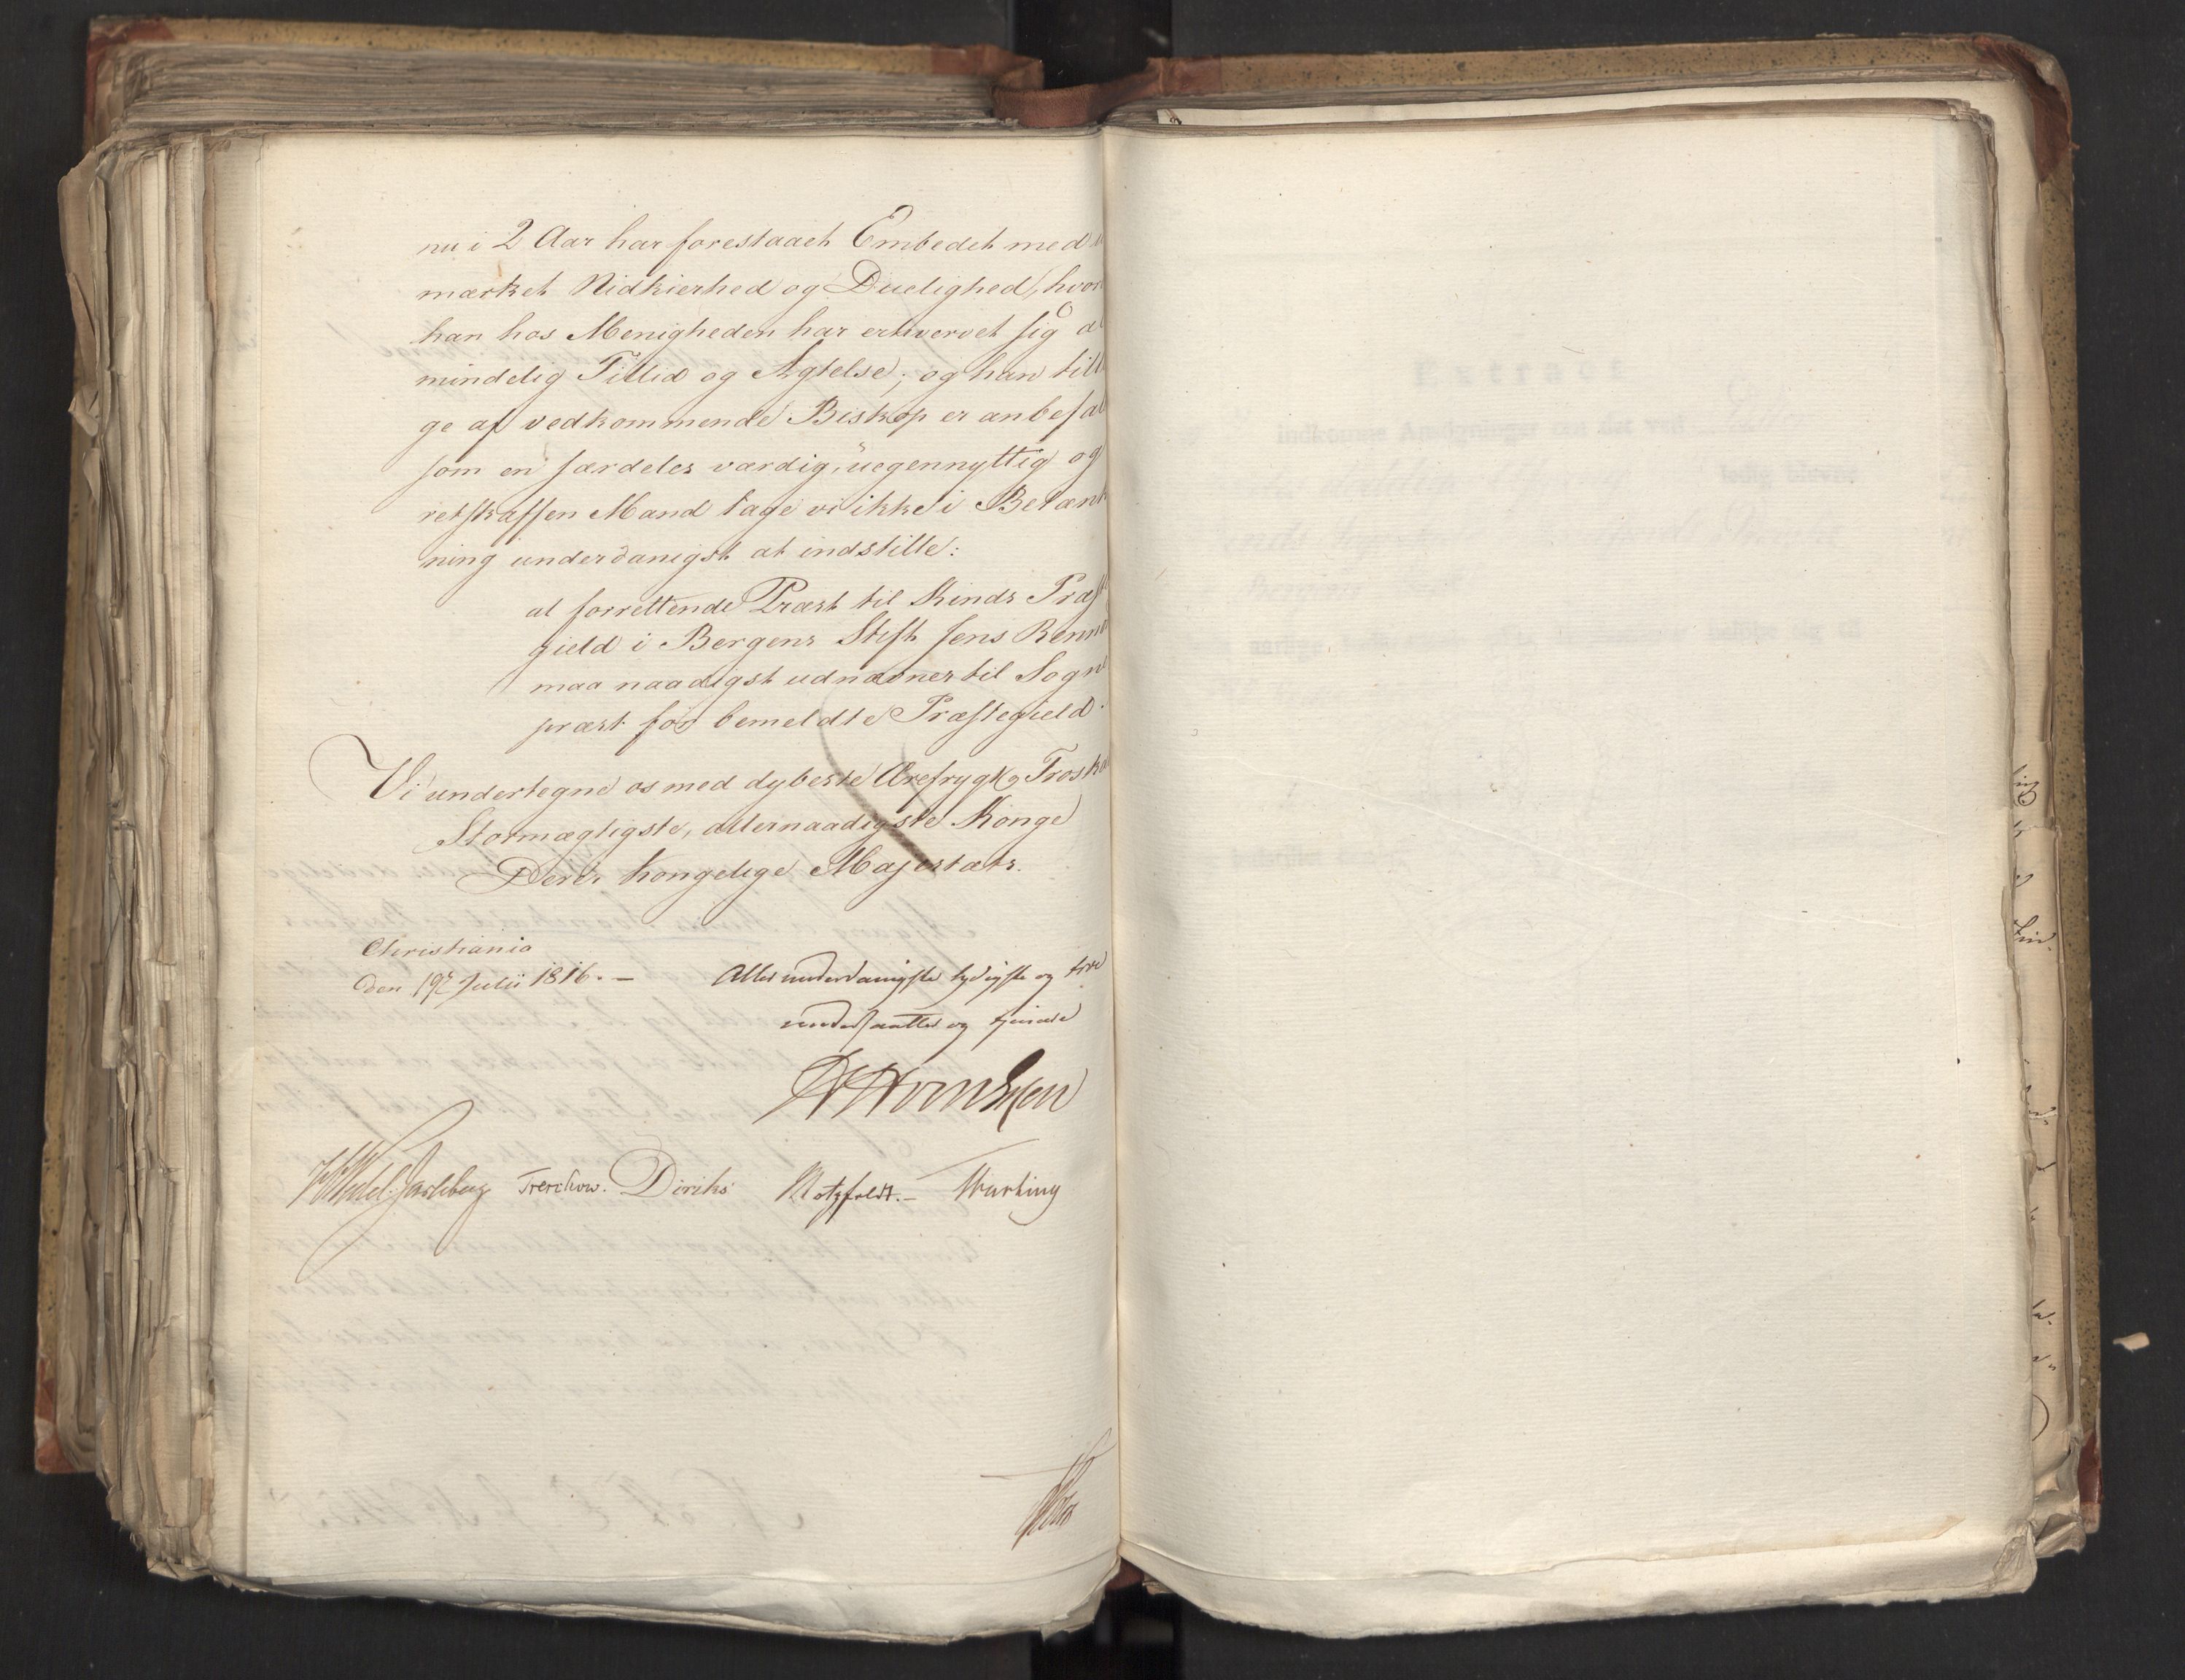 nu i 2 Aar har forestaaet Embedet med
mærket Nidkierhed og Duelighed, hvor
han hos Menigheden har erhvervet sig al
mindelig Tillid og Agtelse; og han till
ge af vedkommende Biskop er anbefal
som en særdeles værdig, uegennyttig og
retskaffen Mand tage vi ikke i Betænk
ning underdanigst at indstille:
at forrettende Præst til Kinds Præst
gield i Bergens Stift Jens
maa naadigst udnævnes til Sogne
præst for bemeldte Præstegield.
Vi undertegne os med dybeste Ærefrygt og Troska
Stormægtigste, allernaadigste Konge
Deres kongelige Majestæts.
Christiania
den 19de Julii 1816. —
Allerunderdanigste lydigste og troe
undersaatter og tjenere
Wedel Jarlsberg Treschow. Diriks Motzfeldt. —
Extract
indkomne Ansøgninger om det ved
ledig blevne